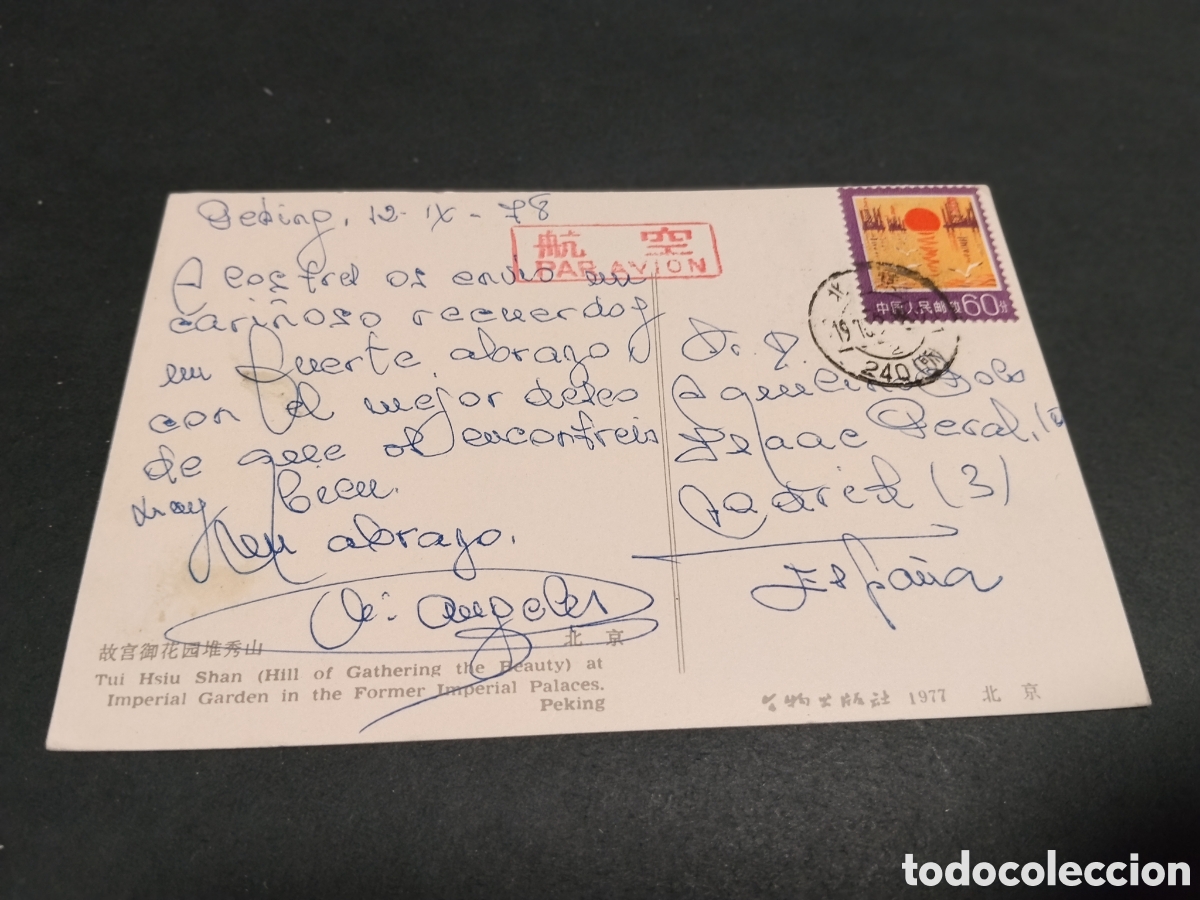 Peking, 12-IX-78
航 空
PAR AVION
A los tres os envio un
cariñoso recuerdo y
un fuerte abrazo,
con el mejor deseo
de que os encontreis
muy bien.
Un abrazo.
Mª Angeles
中国人民邮政 60分
北
19 78
240
Dr. D.
Aquilino
Isaac Peral,
Madrid (3)
España
故宫御花园堆秀山 北 京
Tui Hsiu Shan (Hill of Gathering the Beauty) at
Imperial Garden in the Former Imperial Palaces.
Peking
文物出版社 1977 北 京
todocoleccion